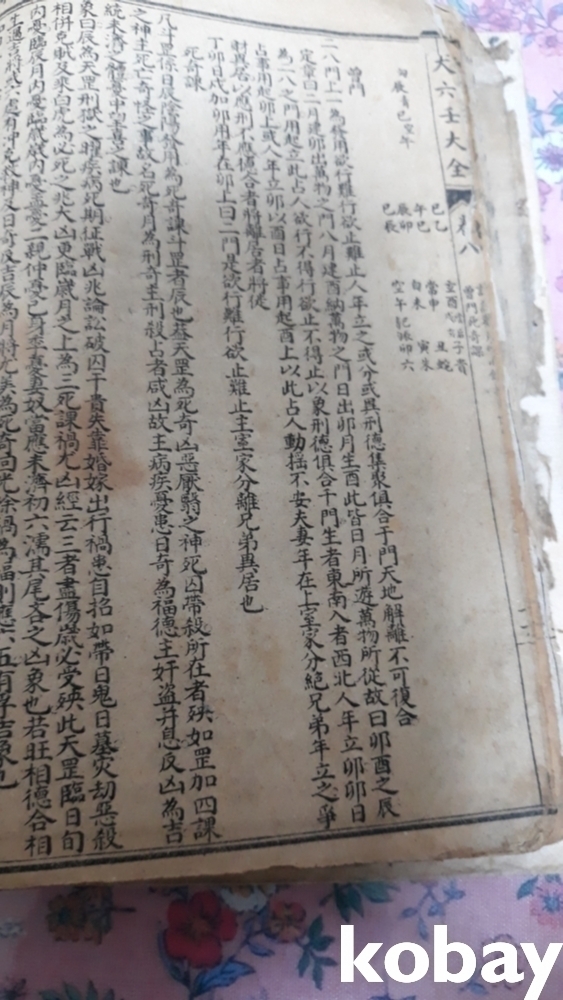 大六壬大全
卷八
曾門
二八門上一為發用欲行難行欲止難止人年立之或分或異刑德集聚俱合于門天地解離不可復合
定章曰二月建卯出萬物之門八月建酉納萬物之門日出卯月生酉此皆日月所遊萬物所從故曰卯酉之辰
為二八之門用起立此占人欲行不得行欲止不得止以象刑德俱合于門生者東南入者西北人年立卯卯日
占事用起卯上或人年立卯以酉日占事用起酉上以此占人動搖不安夫妻年在上室家分絕兄弟年立之爭
財異居以應刑不應德合者將離居者將從
丁卯日戌加卯用年在卯上曰二門是欲行難行欲止難止主室家分離兄弟異居也
死奇課
凡斗罡係日辰陰陽發用為死奇課斗罡者辰也葢天罡為死奇凶惡厭翳之神死囚帶殺所在者殃如罡加四課
之神主死亡奇怪之事故名死奇月為刑奇主刑殺占者咸凶故主病疾憂患日奇為福德主奸盜弭息反凶為吉
統未濟之體憂中望喜之課也
象曰辰為天罡刑獄之曜疾病死期征戰凶兆論訟破囚干貴失靠婚嫁出行禍患自招如帶日鬼日墓災劫惡殺
相併兔賊及來白虎為必死之兆大凶更臨歲月之上為三死課禍尤凶經云三者盡傷歲必受殃此天罡臨日旬
內憂臨辰月內憂臨歲歲內憂孟憂二親仲憂己身季憂妻奴當應未濟初六濡其尾吝之凶象也若旺相德合相
kobay